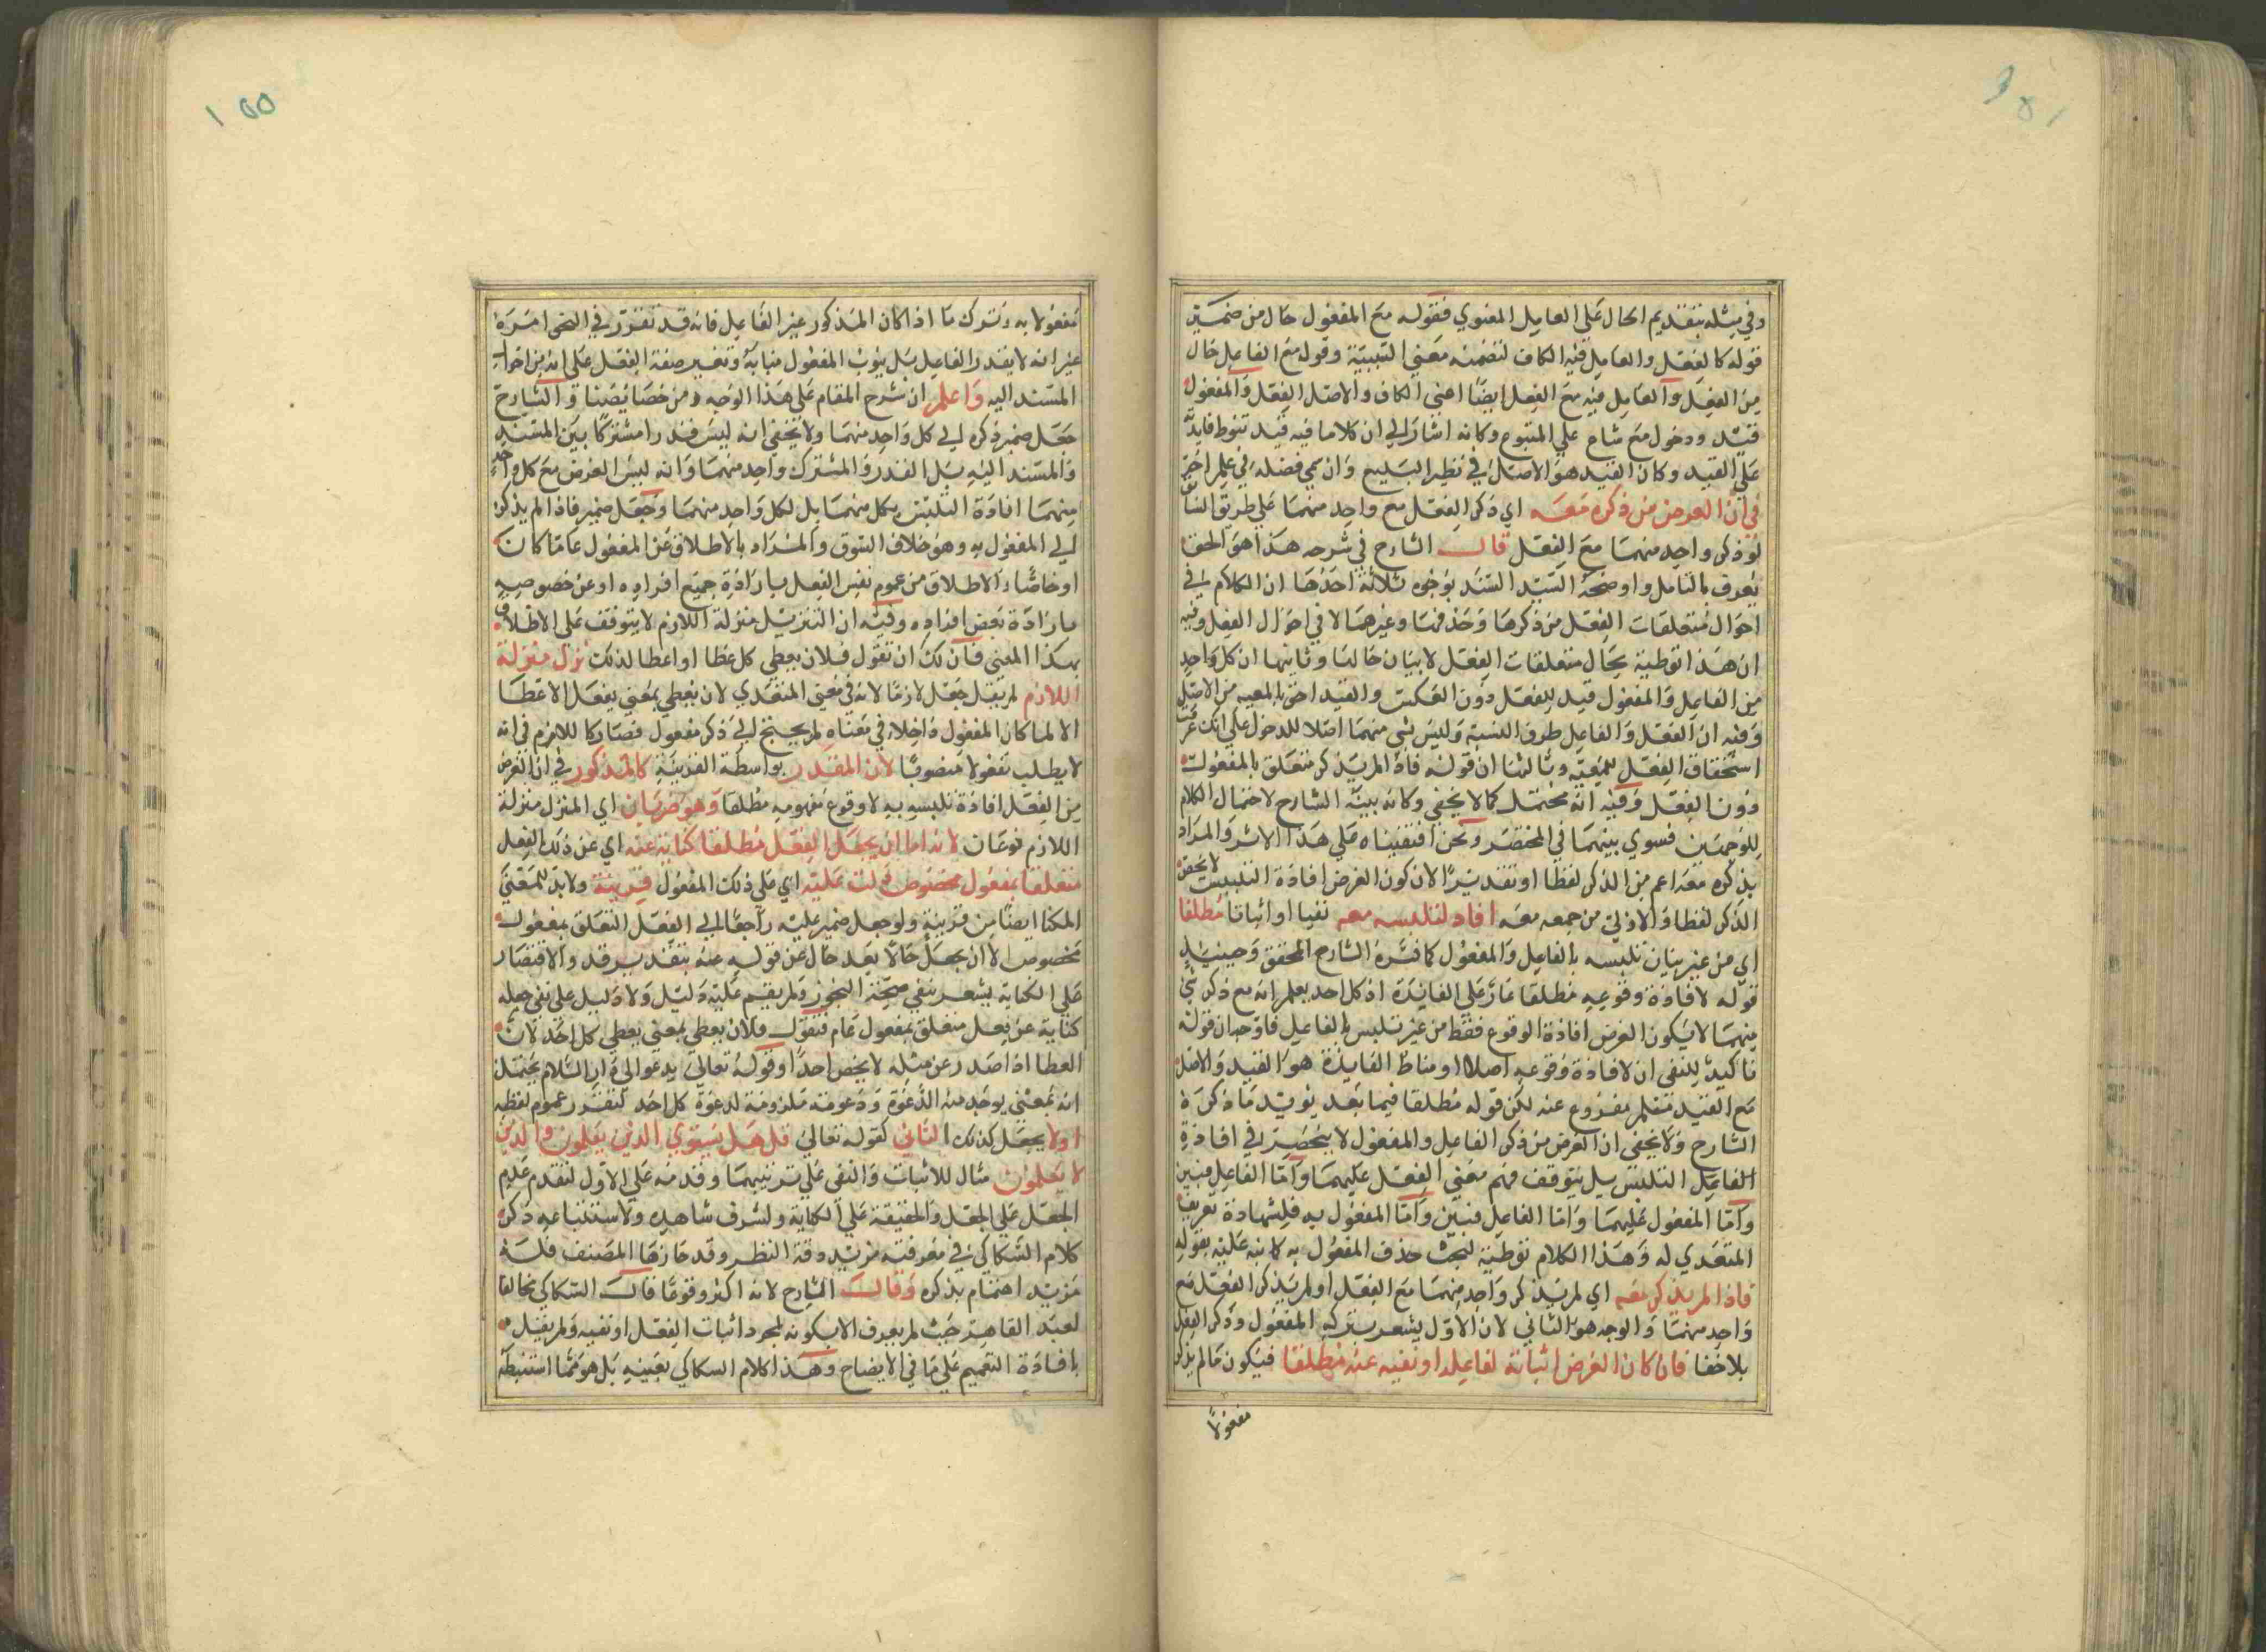 وفي مثله بتقديم الحال على العامل المعنوي فقوله مع المفعول حال من ضمير
قوله كالفعل والعامل فيه الكاف لتضمنه معنى التشبيه وقوله مع الفاعل حال
من الفعل والعامل فيه مع الفعل ايضا اعني الكاف والاصل الفعل والمفعول
قيد ودخول مع شاع على المتبوع وكانه اشار الى ان كلاما فيه قيد تنوط فايدته
على القيد وكان القيد هو الاصل في نظر البليغ وان سمي فضله في علم اخر
في ان الغرض من ذكره معه اي ذكر الفعل مع واحد منهما على طريق
لو ذكر واحد منهما مع الفعل قال الشارح في شرحه هذا هو الحق
يعرف بالتامل واوضحه السيد السند بوجوه ثلاثة احدها ان الكلام في
احوال متعلقات الفعل من ذكرها وحذفها وغيرهما لا في احوال الفعل وفيه
ان هذا توطية بحال متعلقات الفعل لا بيان حالها وثانيها ان كل واحد
من الفاعل والمفعول قيد للفعل دون العكس والقيد احق بالمعية من الاصل
وفيه ان الفعل والفاعل طرف النسبة وليس شي منهما اصلا للدخول على انك عرفت
استحقاق الفعل للمعية وثالثها ان قوله فاذا لم يذكر متعلق بالمفعول
دون الفعل وفيه انه محتمل كما لا يخفى وكانه بينه الشارح لاحتمال الكلام
للوجهين فسوي بينهما في المختصر ونحن اقتفيناه على هذا الاثر والمراد
بذكره معه اعم من الذكر لفظا او تقديرا لان كون الغرض افادة التلبيس لا يخص
الذكر لفظا والاولى من جمعه معه افاد لتلبسه معه نفيا او اثباتا مطلقا
اي من غير بيان تلبسه بالفاعل والمفعول كما فسره الشارح المحقق وحينئذ
قوله لا افادة وقوعه مطلقا عار على الفايدة اذ كل احد يعلم انه مع ذكر شي
منهما لا يكون الغرض افادة الوقوع فقط من غير تلبس بالفاعل فاوجه ان قوله
تاكيد للنفي ان لا افادة وقوعه اصلا او مناط الفايدة هو القيد والاصل
مع القيد متعلم مفروغ عنه لكن قوله مطلقا فيما بعد يؤيد ما ذكره
الشارح ولا يخفى ان الغرض من ذكر الفاعل والمفعول لا ينحصر في افادة
الفاعل التلبس بل يتوقف فهم معنى الفعل عليهما واما الفاعل فبين
واما المفعول عليهما واما الفاعل فبين واما المفعول به فلشهادة تعريف
المتعدي له وهذا الكلام توطية لبحث حذف المفعول به كما نبه عليه بقوله
فاذا لم يذكر معه اي لم يذكر واحد منهما مع الفعل او لم يذكر الفعل مع
واحد منهما والوجه هو الثاني لان الاول يشعر بترك المفعول وذكر الفعل
بلا خفا فان كان الغرض اثباته لفاعله او نفيه عنه مطلقا فيكون ما لم يذكر
مفعولا
مفعولا به وترك ما اذا كان المذكور غير الفاعل فانه قد تقرر في النحو امره
غير انه لا يقدر الفاعل بل ينوب المفعول منابه وتغير صفة الفعل على انه من احوال
المسند اليه واعلم ان شرح المقام على هذا الوجه من خصايصنا والشارح
جعل ضمير ذكره الى كل واحد منهما ولا يخفى انه ليس قدرا مشتركا بين المسند
والمسند اليه بل القدر والمشترك واحد منهما وانه ليس الغرض مع كل واحد
منهما افادة التلبس بكل منهما بل لكل واحد منهما وجعل ضمير فاذا لم يذكر
الى المفعول به وهو خلاف السوق والمراد بالاطلاق عن المفعول عاما كان
او خاصا والاطلاق من عموم نفس الفعل بارادة جميع افراده او عن خصوصه
بارادة بعض افراده وفيه ان التنزيل منزلة اللازم لا يتوقف على الاطلاق
بهذا المعنى فان لك ان تقول فلان يعطي كل عطا او اعطا لذلك نزل منزلة
اللازم لم يقل جعل لازما لانه في معنى المتعدي لان يعطي بمعنى يفعل الاعطا
الا لما كان المفعول داخلا في معناه لم يحتج الى ذكر مفعول فصار كاللازم في انه
لا يطلب مفعولا منصوبا لان المقدر بواسطة القرينة كالمذكور في ان الغرض
من الفعل افادة تلبسه به لا وقوع مفهومه مطلقا وهو ضربان اي المنزل منزلة
اللازم نوعان لانه اما ان يجعل الفعل مطلقا كناية عنه اي عن ذلك الفعل
متعلقا بمفعول مخصوص دلت عليه اي على ذلك المفعول قرينة ولا بد للمعنى
المكنا ايضا من قرينة ولو جعل ضمير عليه راجعا الى الفعل المتعلق بمفعول
مخصوص لان يجعل حالا بعد حال عن قوله عنه بتقدير قد والاقتصار
على الكناية يشعر بنفي صحة التجوز ولم يقم عليه دليل ولا دليل على نفي جعله
كناية عن فعل متعلق بمفعول عام فتقول فلان يعطي بمعنى يعطي كل احد لان
العطا اذا صدر عن مثله لا يخص احدا وقوله تعالى يدعو الى دار السلام يحتمل
انه بمعنى يوجد منه الدعوة ودعوته ملزومة لدعوة كل احد لتقرر عموم لفظه
اولا يجعل كذلك الثاني كقوله تعالى قل هل يستوي الذين يعلمون والذين
لا يعلمون مثال للاثبات والنفي على ترتيبهما وقدمه على الاول لتقدم عدم
الجعل على الجعل والحقيقة على الكناية ولشرف شاهده ولاستتباعه ذكر
كلام السكاكي في معرفته مزيد دقة النظر وقد حازها المصنف فلسنه
مزيد اهتمام بذكره وقال الشارح لانه اكثر وقوعا قال السكاكي مخالفا
لعبد القاهر حيث لم يعرف الا بكونه لمجرد اثبات الفعل او نفيه ولم يقيل
بافادة التعميم على ما في الايضاح وهذا كلام السكاكي بعينه بل هو مما استنبطه